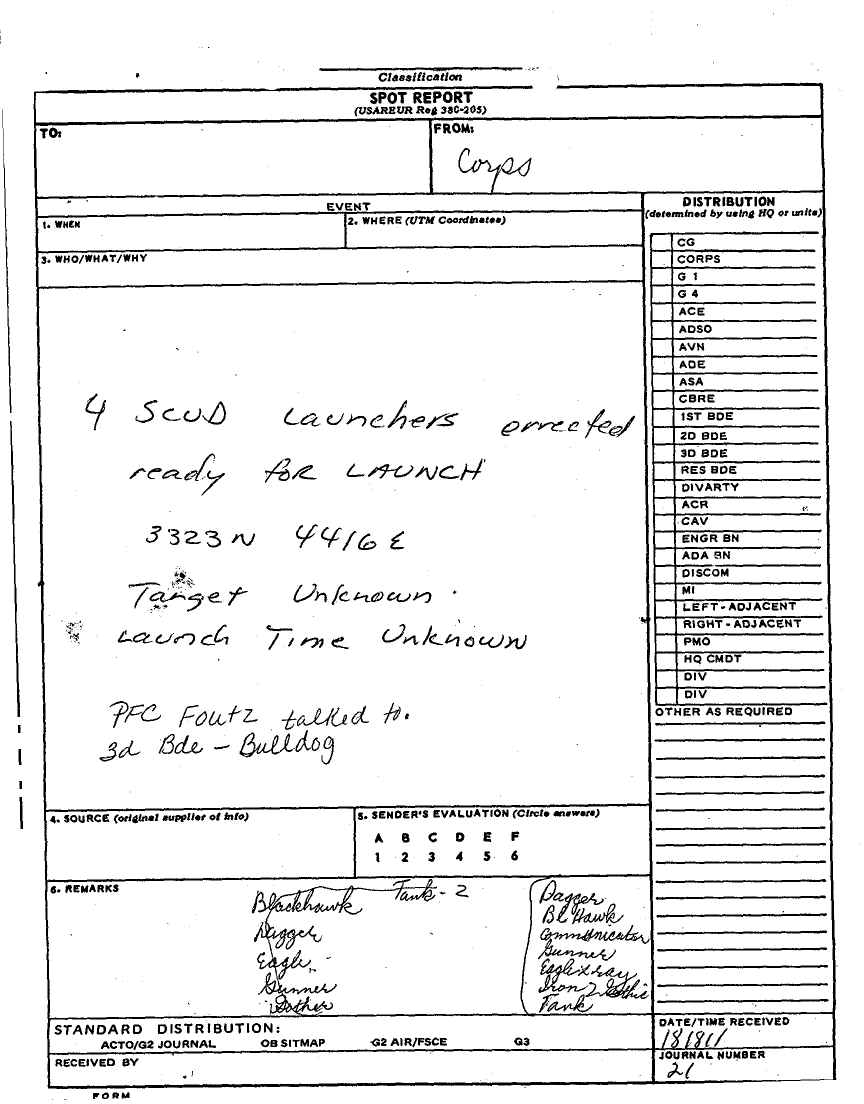 Classification
SPOT REPORT
(USAREUR Reg 380-205)
TO:
FROM:
Corps
EVENT
1. WHEN
2. WHERE (UTM Coordinates)
3. WHO/WHAT/WHY
4 SCUD Launchers errected
ready for LAUNCH
3323N 4416E
Target Unknown.
Launch Time Unknown
PFC Foutz talked to.
3d Bde - Bulldog
DISTRIBUTION
(determined by using HQ or units)
CG
CORPS
G 1
G 4
ACE
ADSO
AVN
ADE
ASA
CBRE
1ST BDE
2D BDE
3D BDE
RES BDE
DIVARTY
ACR
CAV
ENGR BN
ADA BN
DISCOM
MI
LEFT - ADJACENT
RIGHT - ADJACENT
PMO
HQ CMDT
DIV
DIV
OTHER AS REQUIRED
4. SOURCE (original supplier of info)
5. SENDER'S EVALUATION (Circle answers)
A B C D E F
1 2 3 4 5 6
6. REMARKS
Blackhawk Tank - 2
Dagger
Eagle
Gunner
Dagger
Bl Hawk
Communicator
Gunner
Eagle xray
Iron 2
Tank
STANDARD DISTRIBUTION:
ACTO/G2 JOURNAL OB SITMAP G2 AIR/FSCE G3
RECEIVED BY
DATE/TIME RECEIVED
JOURNAL NUMBER
21
FORM